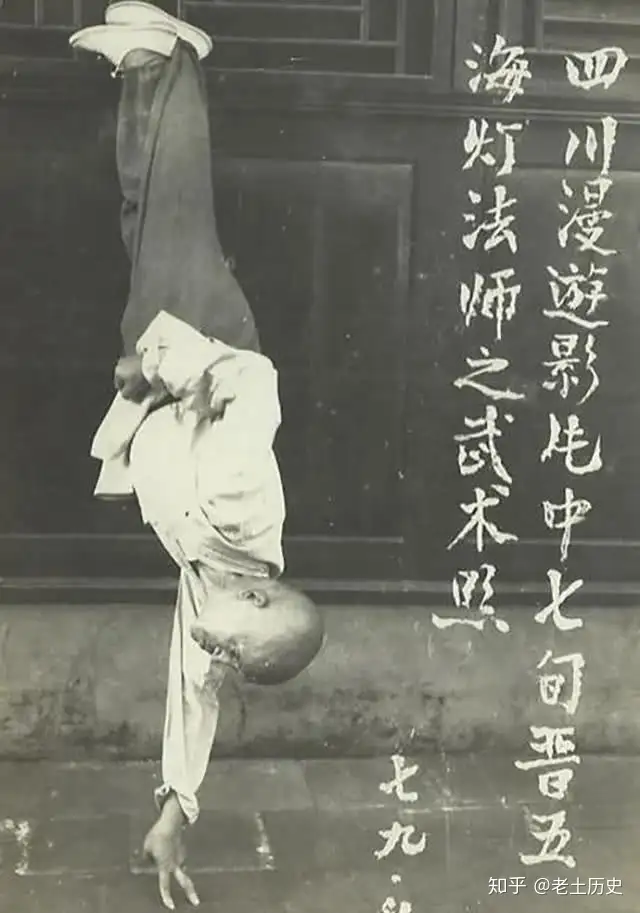 四川漫遊影片中七旬晋五
海灯法师之武术照
七九·
知乎 @老土历史